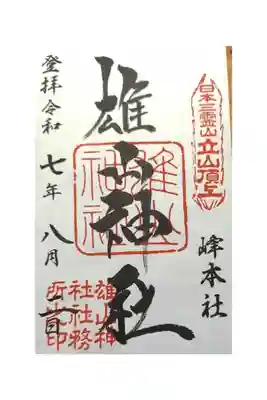 日本三霊山立山頂上
峰本社
雄山神社
雄山神社
登拝令和七年八月
雄山神
社社務
所之印